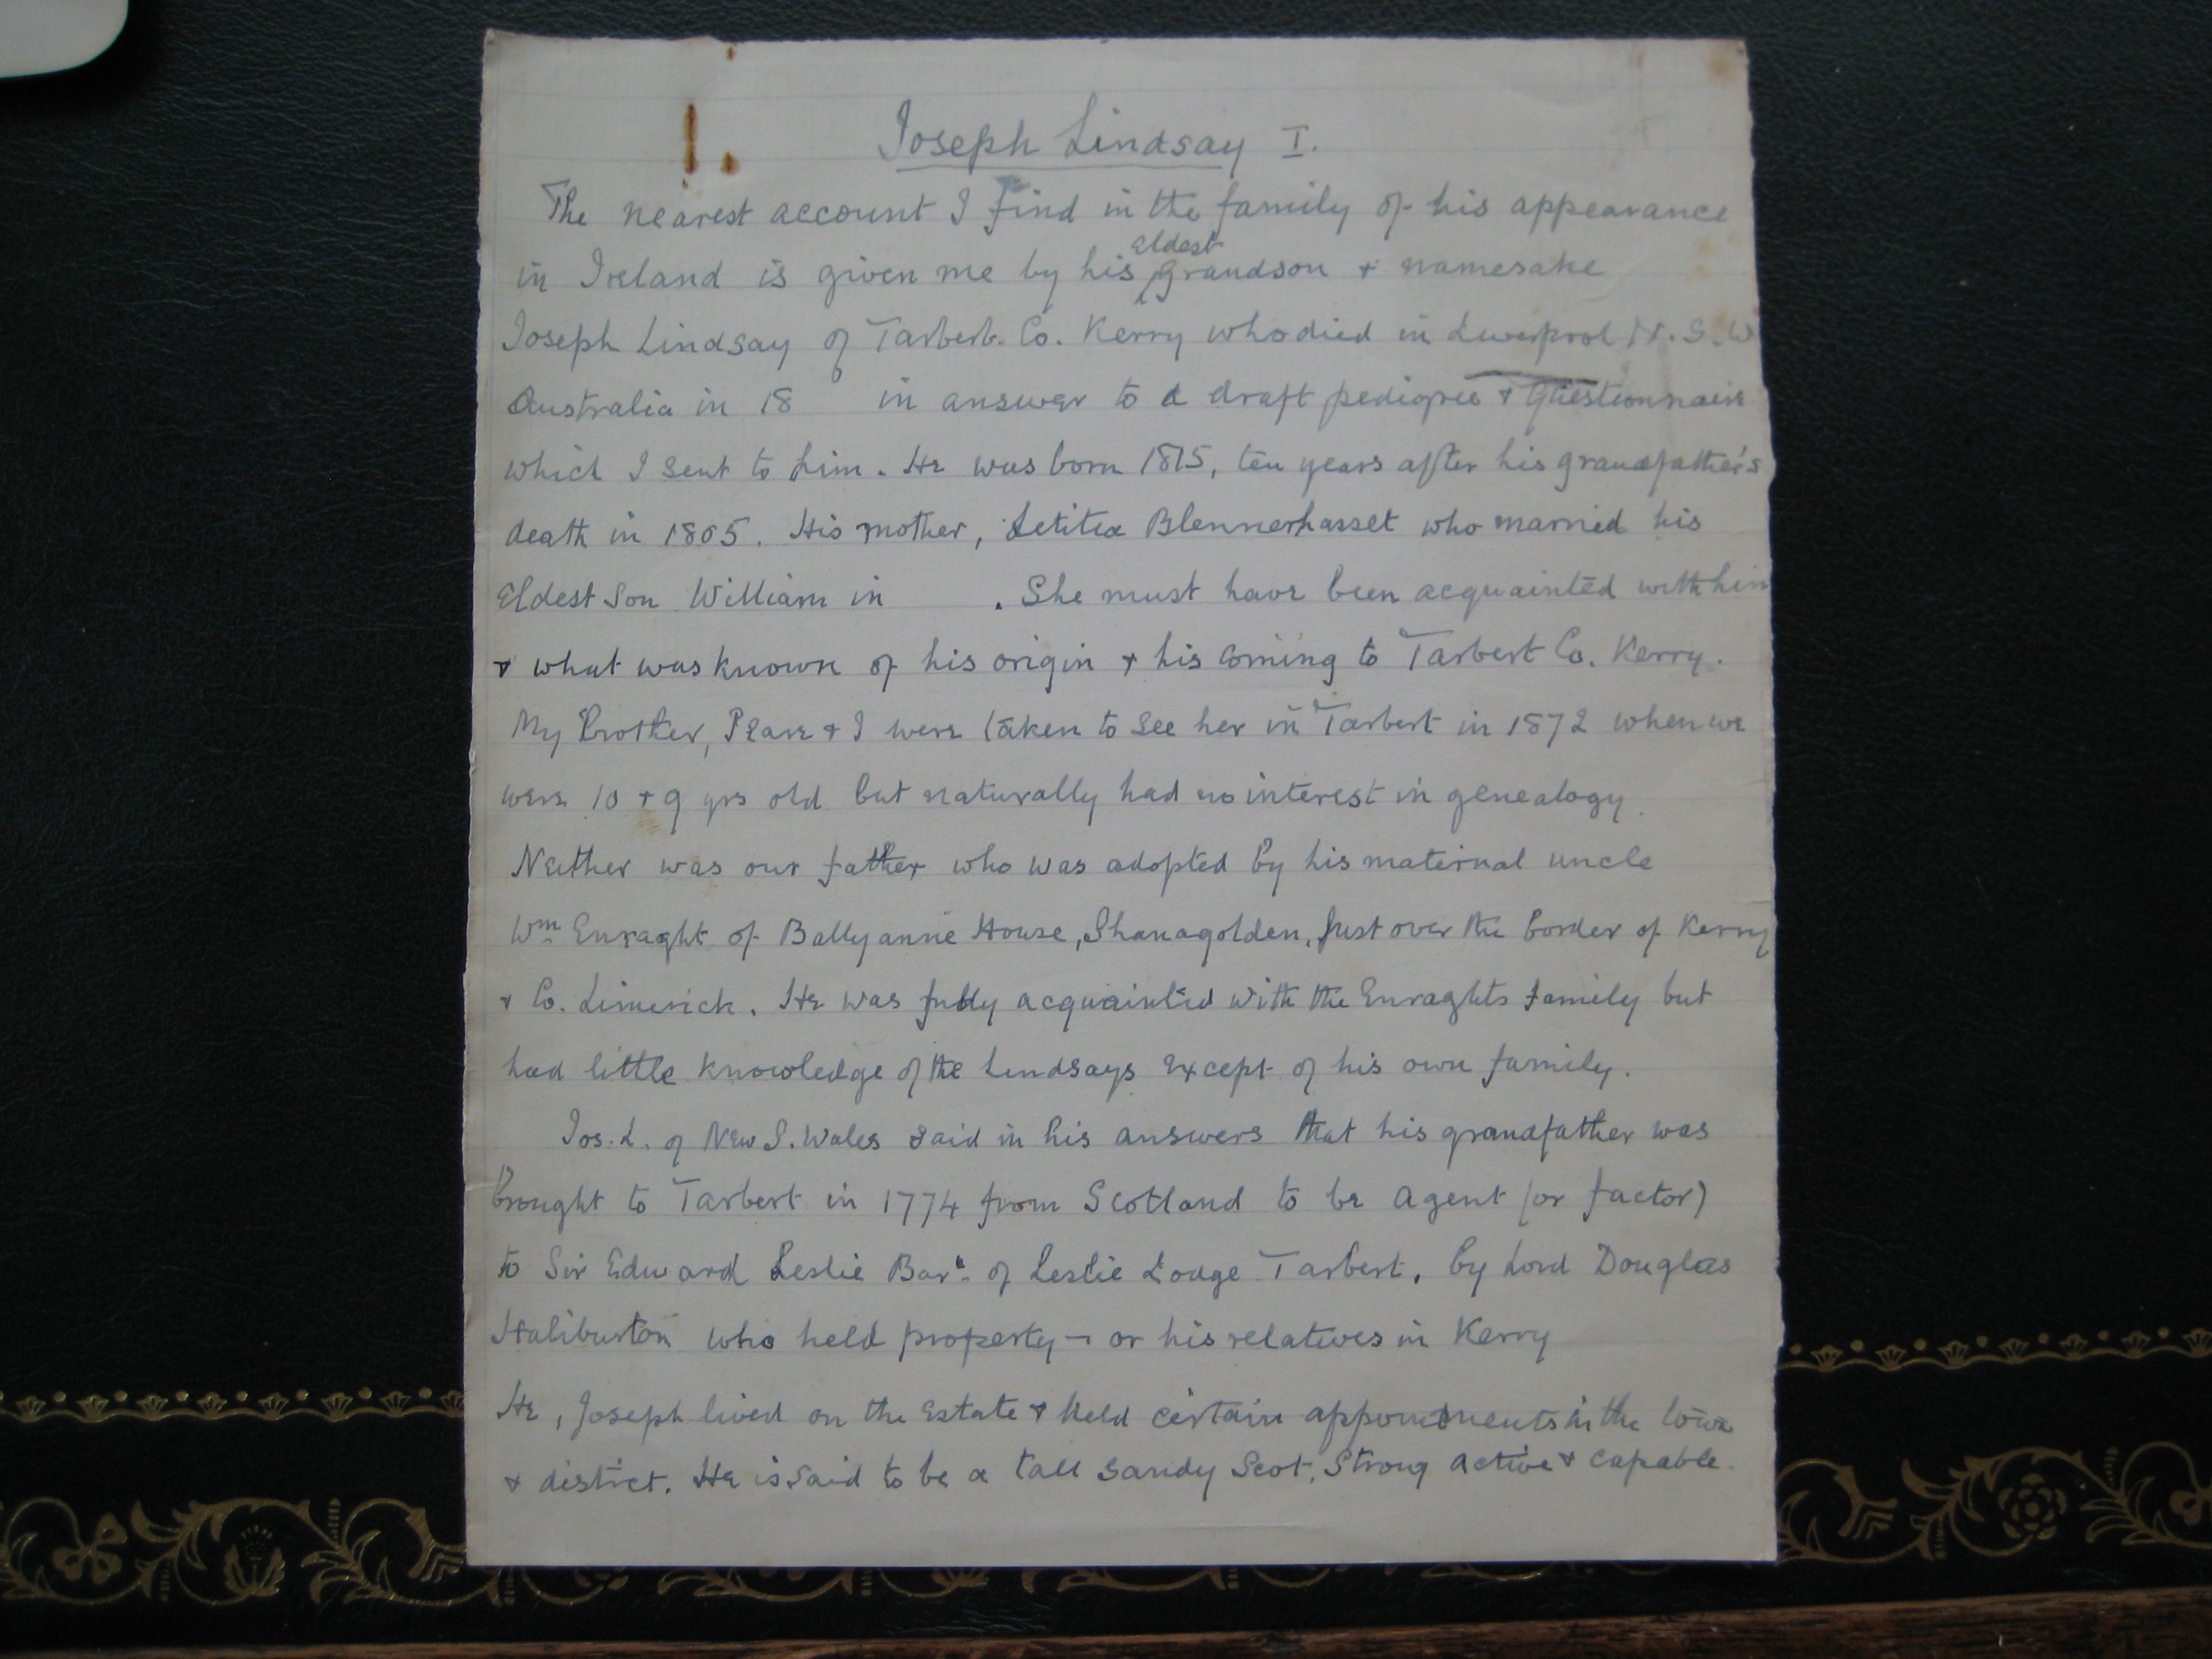 Joseph Lindsay I.
The nearest account I find in the family of his appearance
in Ireland is given me by his Eldest grandson + namesake
Joseph Lindsay of Tarbert. Co. Kerry who died in Liverpool N.S.W
Australia in 18 in answer to a draft pedigree + Questionnaire
which I sent to him. He was born 1815, ten years after his grandfather's
death in 1805. His mother, Letitia Blennerhasset who married his
Eldest Son William in . She must have been acquainted with him
+ what was known of his origin + his coming to Tarbert Co. Kerry.
My Brother, + I were taken to see her in Tarbert in 1872 when we
were 10 + 9 yrs old but naturally had no interest in genealogy.
Neither was our father who was adopted by his maternal uncle
Wm Enraght of Ballyanne House, Shanagolden, just over the border of Kerry
+ Co. Limerick. He was fully acquainted with the Enraghts family but
had little knowledge of the Lindsays except of his own family.
Jos. L. of New S. Wales said in his answers that his grandfather was
brought to Tarbert in 1774 from Scotland to be agent (or factor)
to Sir Edward Leslie Bart. of Leslie Lodge Tarbert, by Lord Douglas
Haliburton who held property – or his relatives in Kerry
He, Joseph lived on the Estate + held certain appointments in the town
+ district. He is said to be a tall sandy Scot, Strong active + capable.